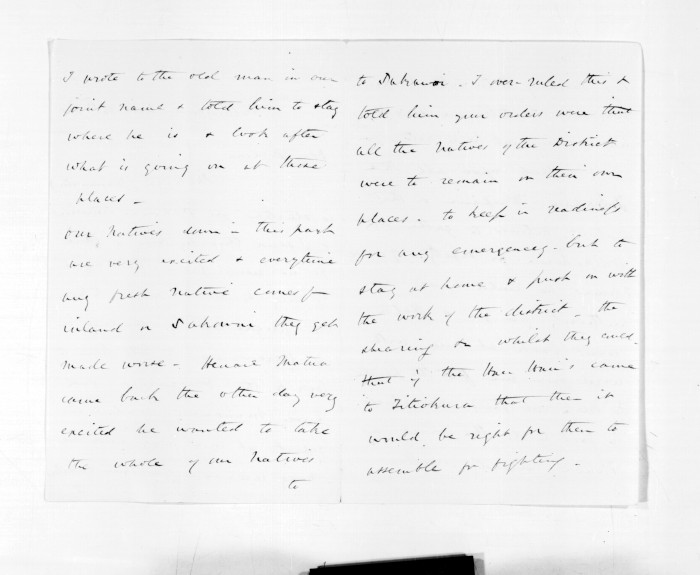 I wrote to the old man in our
joint name & told him to stay
where he is & look after
what is going on at those
places -
our Natives down in this part
are very excited & everytime
any fresh native comes fr
inland or they get
made worse - Henare Matua
came back the other day very
excited he wanted to take
the whole of our Natives
to
to . I over ruled this &
told him your orders were that
all the Natives of the District
were to remain on their own
places - to keep in readiness
for any emergency - but to
stay at home & push on with
the work of the district - the
shearing &c whilst they could.
that if the Hau Hau's came
to Titiokura that then it
would be right for them to
assemble for fighting -